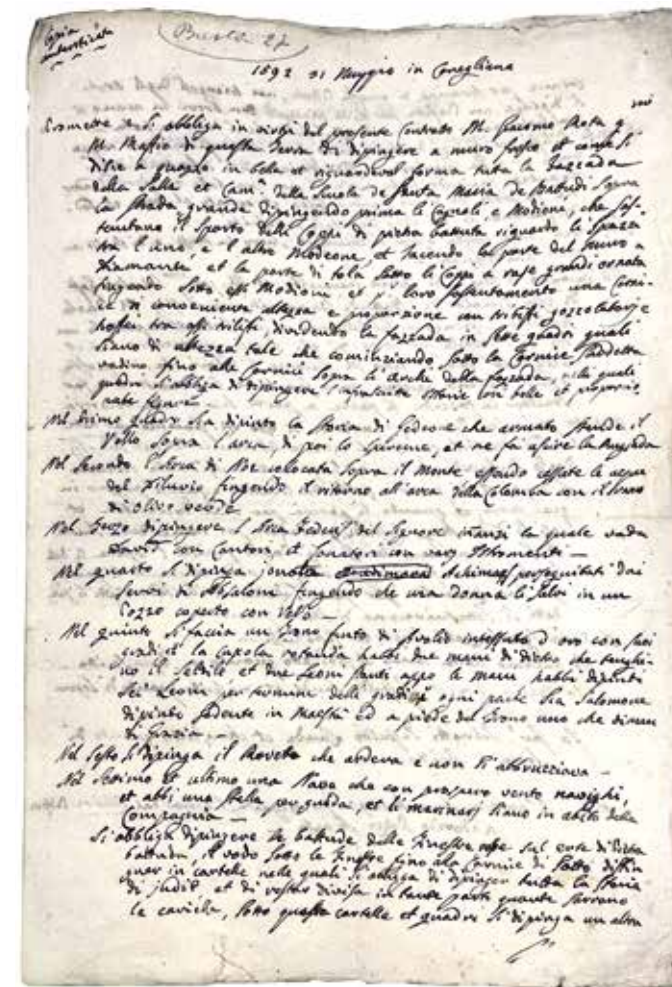 Copia
autenticata
Busta 27
1592 21 Maggio in Conegliano
Promette et si obbliga in virtù del presente Contrato M. Giacomo Rota q.
M. Maffio di questa Terra di dipingere a muro fresco et come si
dise a guazzo in bela et riguardevol forma tuta la Fazzada
della Salla et Cam.ᵃ della Scuola de Santa Maria de Battudi Sopra
la Strada grande dipingendo prima li Cagnoli, e Modioni, che sos-
tentano il Sporto delli Coppi di pietra battuta riguardo la Spazza
tra l'uno, e l'altro Modeone, et facendo la parte del muro a
Diamante, et la parte di tola Sotto li Coppi a rose grandi ornata
fingendo Sotto essi Modioni et p loro sostentamento una Corni-
ce di conveniente altezza e proporzione con trilifi gozzolatorj e
tra essi trilifi, dividendo la fazzada in Sette quadri quali
siano di altezza tale che cominziando Sotto la Cornice Suddetta
vadino fino alle Cornici Sopra li Archi della fazzada, nelli quali
quadri si obbliga di dipingere l'infrascritte Istorie con belle et proporzio-
nate figure
Nel primo quadro sia dipinto la Storia di Gedeone che armato stende il
Vello Sopra l'area, di poi lo spreme, et ne fa usire la Rugiada
Nel Secondo l'Arca di Noe colocata Sopra il Monte essendo cessate le acque
del Diluvio fingendo il ritorno all'arca della Colomba con il ramo
di olivo verde
Nel Terzo dipingere l'Arca Federis del Signore inanzi la quale vada
David con Cantori, et Sonatori con varj Istromenti —
Nel quarto si dipinga Jonatta Achimas perseguitati dai
Servi di Absaloni fingendo che una donna li salvi in un
Pozzo coperto con Velo —
Nel quinto si faccia un Trono finto di Avolio intessuto d'oro con suoi
gradi et la Cupola rotonda habbi due mani di dietro che tenghi-
no il Sedile, et due Leoni stanti appo le mani habbi dipinti
Sei Leoni per somini delli gradi p ogni parte Sia Salomone
dipinto Sedente in Maestà ed a piede del Trono uno che diman
di Grazia —
Nel Sesto Si dipinga il Roveto che ardeva e non s'abbruzziava —
Nel Settimo et ultimo una Nave che con prospero vento navighi,
et abbi una Stella per guida, et li marinarj siano in abito della
Compagnia —
Si obbliga dipingere le battude delle Finestre sul erte di Pietra
battuda, il vodo Sotto le Finestre fino alla Cornice di Sotto distin
guer in cartelle nelle quali si obbliga di dipinger tutta la Storia
di Judit et di Vestar divisa in tante parti quante sarano
le cartele, Sotto queste cartelle et quadri si dipinga un altra